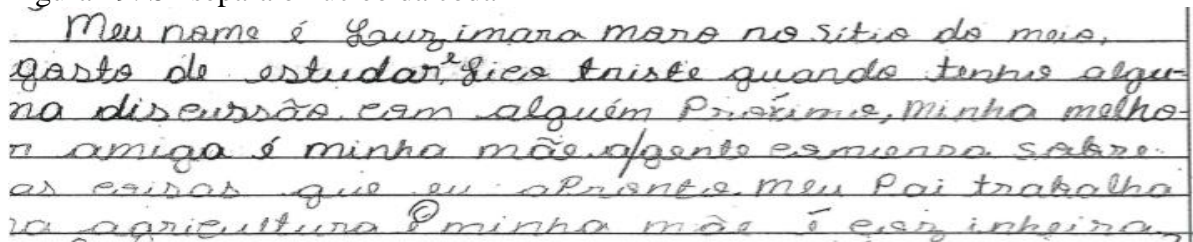 Meu nome é Lauzimara moro no sitio do meio,
gosto de estudar, e fico triste quando tenho algu-
ma discussão com alguém Proximo, minha melho-
r amiga é minha mãe a/gente comversa sobre
as coisas que eu apronto. meu Pai trabalha
na agricultura e minha mãe é cozinheira,